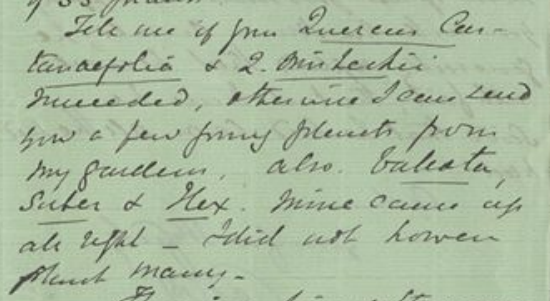 of 33 
Tell me if your Quercus Cas-
tanaefolia & Q. Mirbeckii
succeeded, otherwise I can send
you a few young plants from
my garden, also. Valeota,
Suber & Ilex. Mine came up
all right – I did not however
plant many –